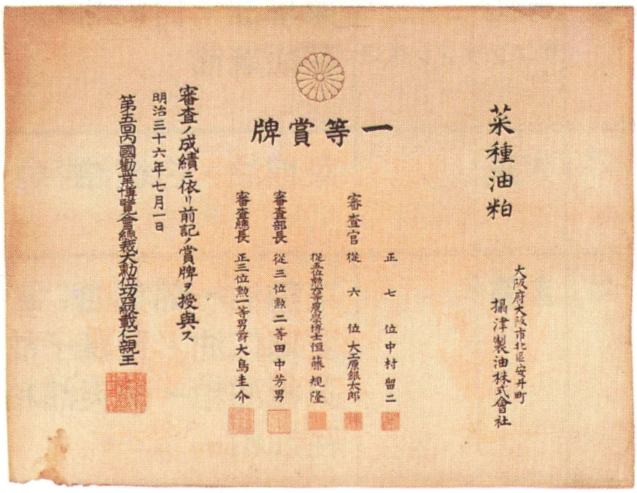 菜種油粕
大阪府大阪市北區安井町
攝津製油株式會社
一等賞牌
正七位中村留二
審査官從六位大工原銀太郎
從五位勲六等農學博士恒藤規隆
審査部長從三位勲二等田中芳男
審査總長正三位勲一等男爵大鳥圭介
審査ノ成績ニ依リ前記ノ賞牌ヲ授與ス
明治三十六年七月一日
第五回內國勸業博覽會總裁大勲位功四級載仁親王